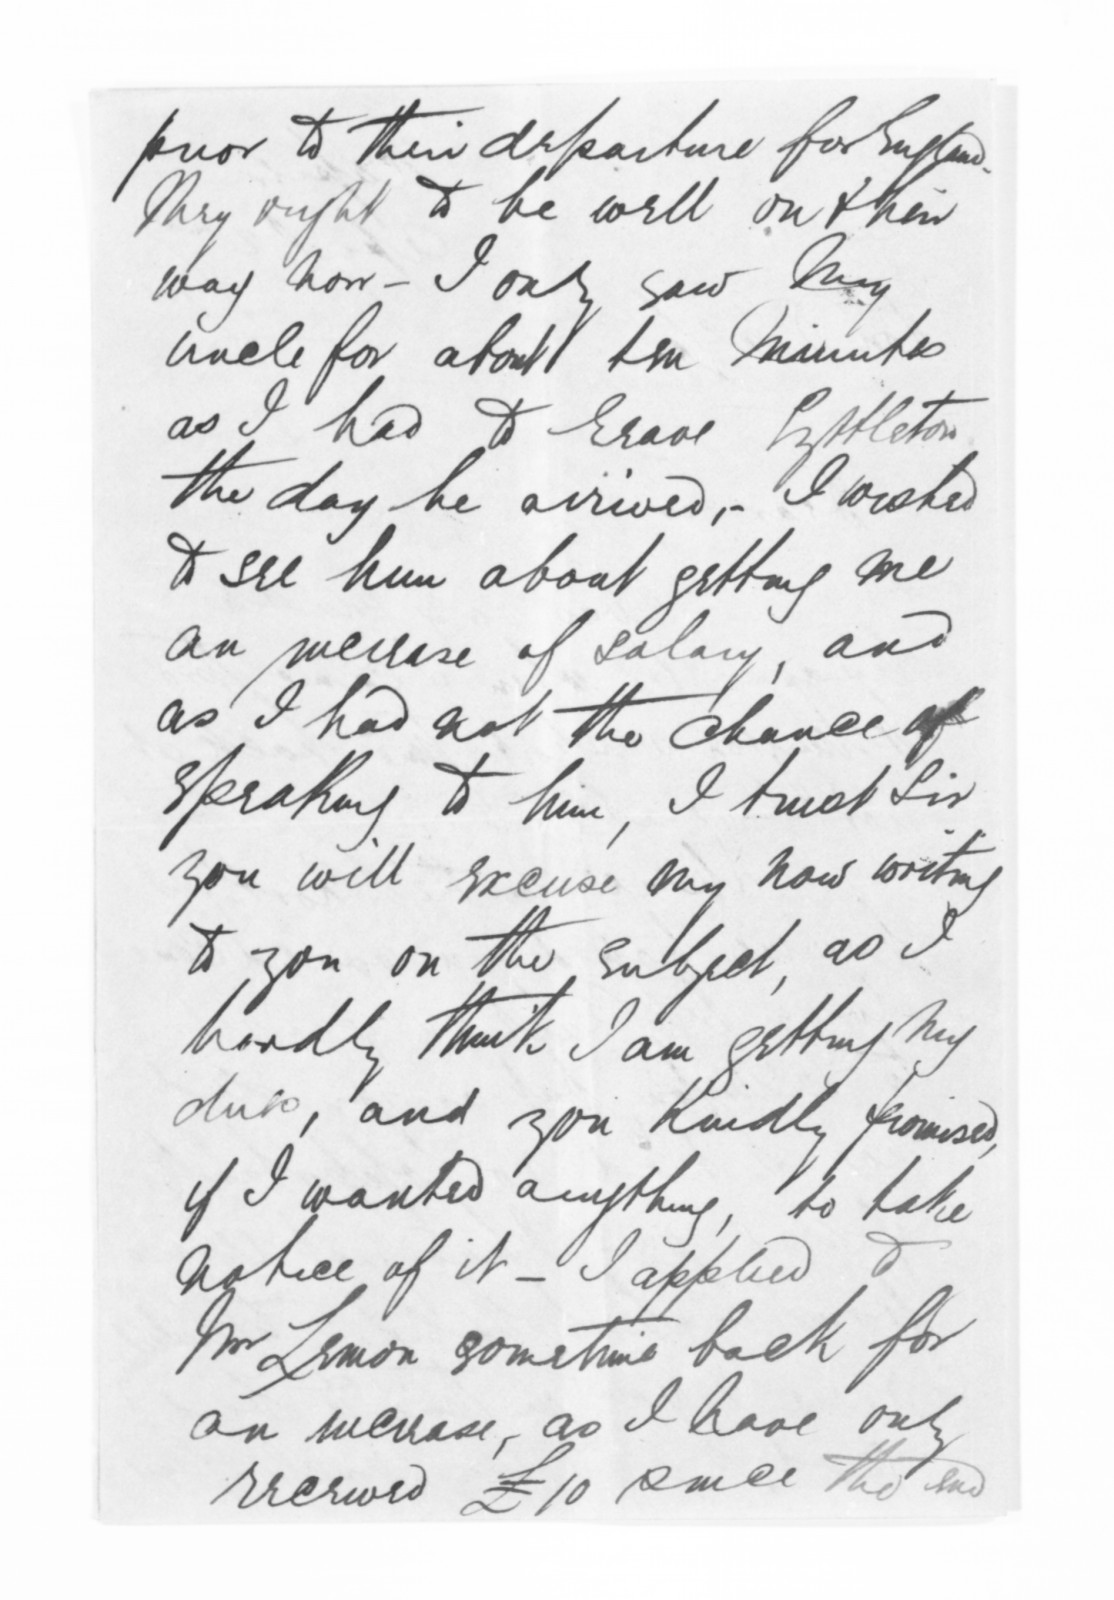 prior to their departure for England.
They ought to be well on their
way now - I only saw my
uncle for about ten minutes
as I had to leave Lyttleton
the day he arrived, - I wished
to see him about getting me
an increase of salary, and
as I had not the chance of
speaking to him, I trust Sir
you will excuse my now writing
to you on the subject, as I
hardly think I am getting my
dues, and you kindly promised,
if I wanted anything, to take
notice of it - I applied to
Mr Lemon sometime back for
an increase, as I have only
received £10 since the end